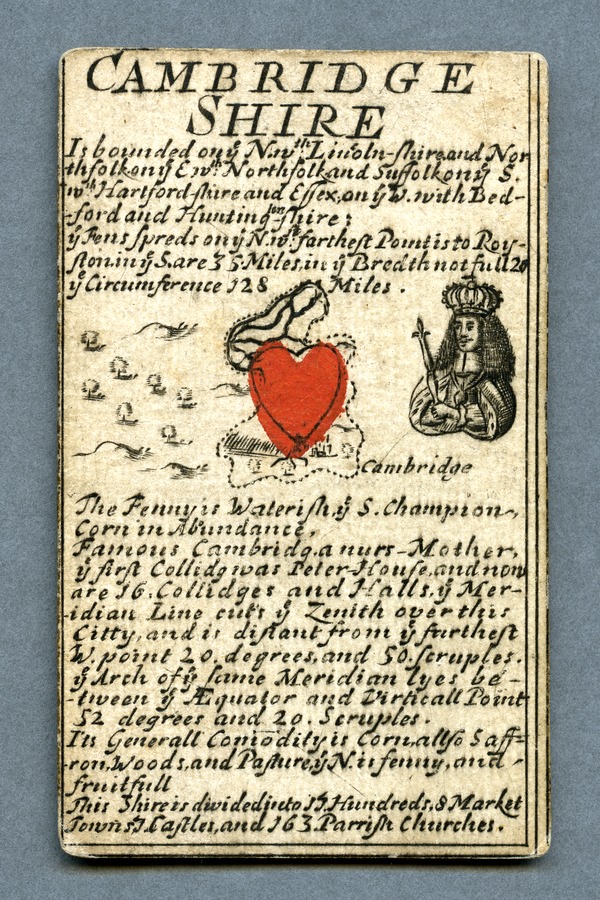 CAMBRIDGE
SHIRE
Is bounded on ẏ N.wᵗʰ Lincoln-shire and Nor
thfolk on ẏ E wᵗʰ Northfolk and Suffolk on ẏ S.
wᵗʰ Hartford-shire and Essex, on ẏ W. with Bed-
-ford and Huntingᵗᵒⁿshire;
ẏ Fens spreds on ẏ N.wᵗ. farthest Point is to Roy-
ston. in ẏ S. are 35 Miles, in ẏ Bredth not full 20
ẏ Circumference 128 Miles.
Cambridge
The Fenny is Waterish, ẏ S. Champion,
Corn in Abundance,
Famous Cambridg. a nurs-Mother,
ẏ first Collidg was Peter-House, and now
are 16. Collidges and Halls, ẏ Mer-
idian Line cuts ẏ Zenith over this
Citty, and is distant from ẏ furthest
W. point 20. degrees, and 50. scruples.
ẏ Arch of ẏ same Meridian lyes be-
-tween ẏ Æquator and Virticall Point
52 degrees and 20. Scruples.
Its Generall Comodity is Corn, allso Saff-
-ron, Woods, and Pasture, ẏ N. is fenny, and
fruitfull
This Shire is divided into 17 Hundreds, 8 Market
Towns 7. Castles, and 163. Parrish Churches.